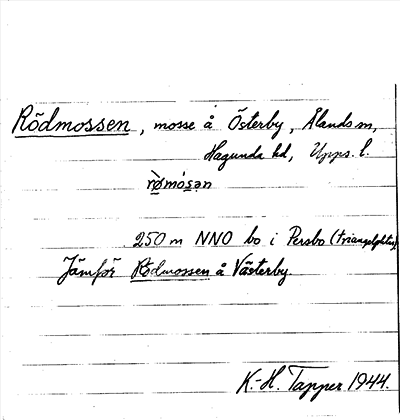 Rödmossen, mosse å Österby, Ålands m,
Hagunda hd, Upps. l.
rø̀mósan
250 m NNO bo i Persbo (triangelpkten)
Jämför Rödmossen å Västerby
K.-H. Tapper 1944.